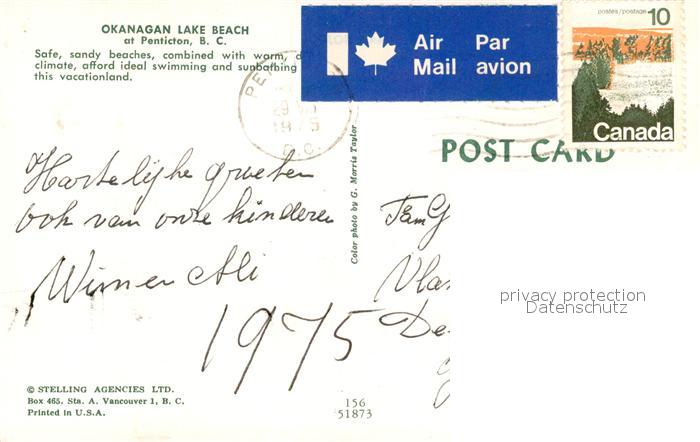 OKANAGAN LAKE BEACH
at Penticton, B. C.
Safe, sandy beaches, combined with warm,
climate, afford ideal swimming and sunbathing
this vacationland.
Air Mail
Par avion
postes/postage 10
Canada
1975
B.C.
POST CARD
Hartelijke groeten
ook van onze kinderen
Wim en Ali
1975
Color photo by G. Morris Taylor
Fam G
Vla
De
privacy protection
Datenschutz
© STELLING AGENCIES LTD.
Box 465. Sta. A. Vancouver 1, B. C.
Printed in U.S.A.
156
51873